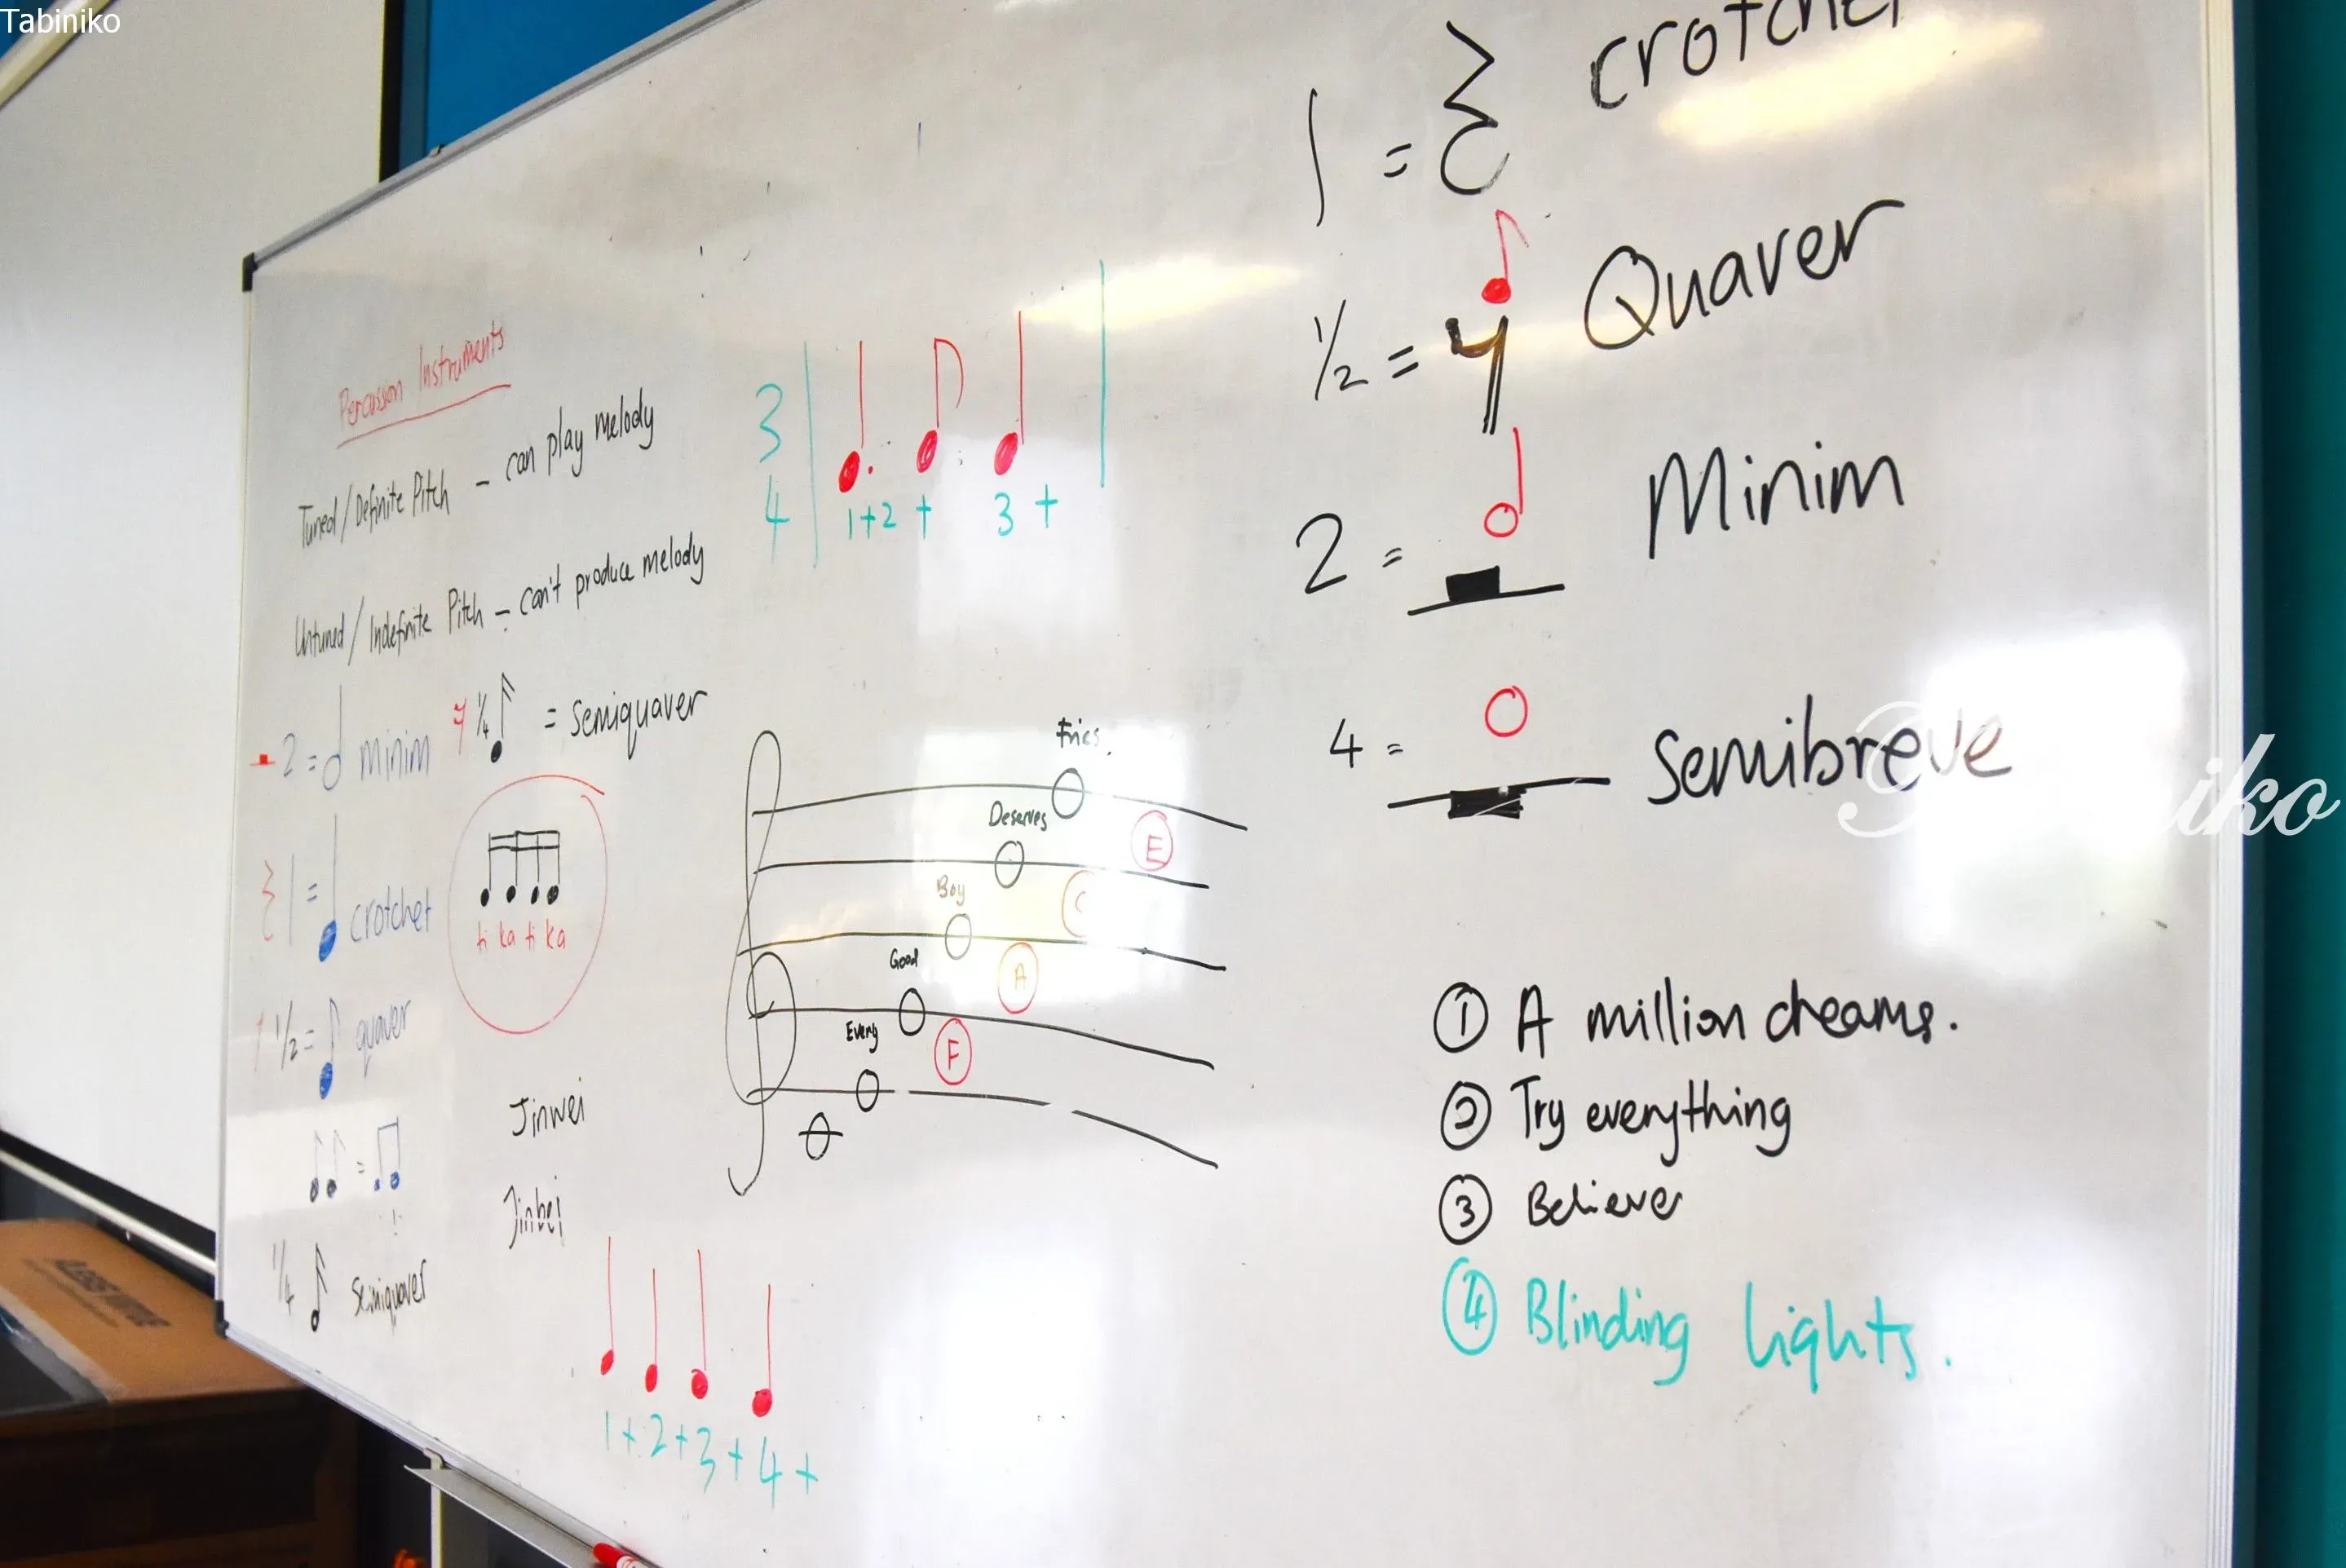 Tabiniko
Percussion Instruments
Tuned/Definite Pitch – can play melody
Untuned/Indefinite Pitch – can't produce melody
2 = minim
1/4 = semiquaver
ti ka ti ka
1 = crotchet
1/2 = quaver
=
1/4 semiquaver
Jinwei
Jinbei
3
4
1+2 + 3 +
Fries.
Deserves
Boy
Good
Every
E
C
A
F
1+2+3+4+
1 = crotchet
1/2 = Quaver
2 = Minim
4 = Semibreve
① A million dreams.
② Try everything
③ Believer
④ Blinding lights.